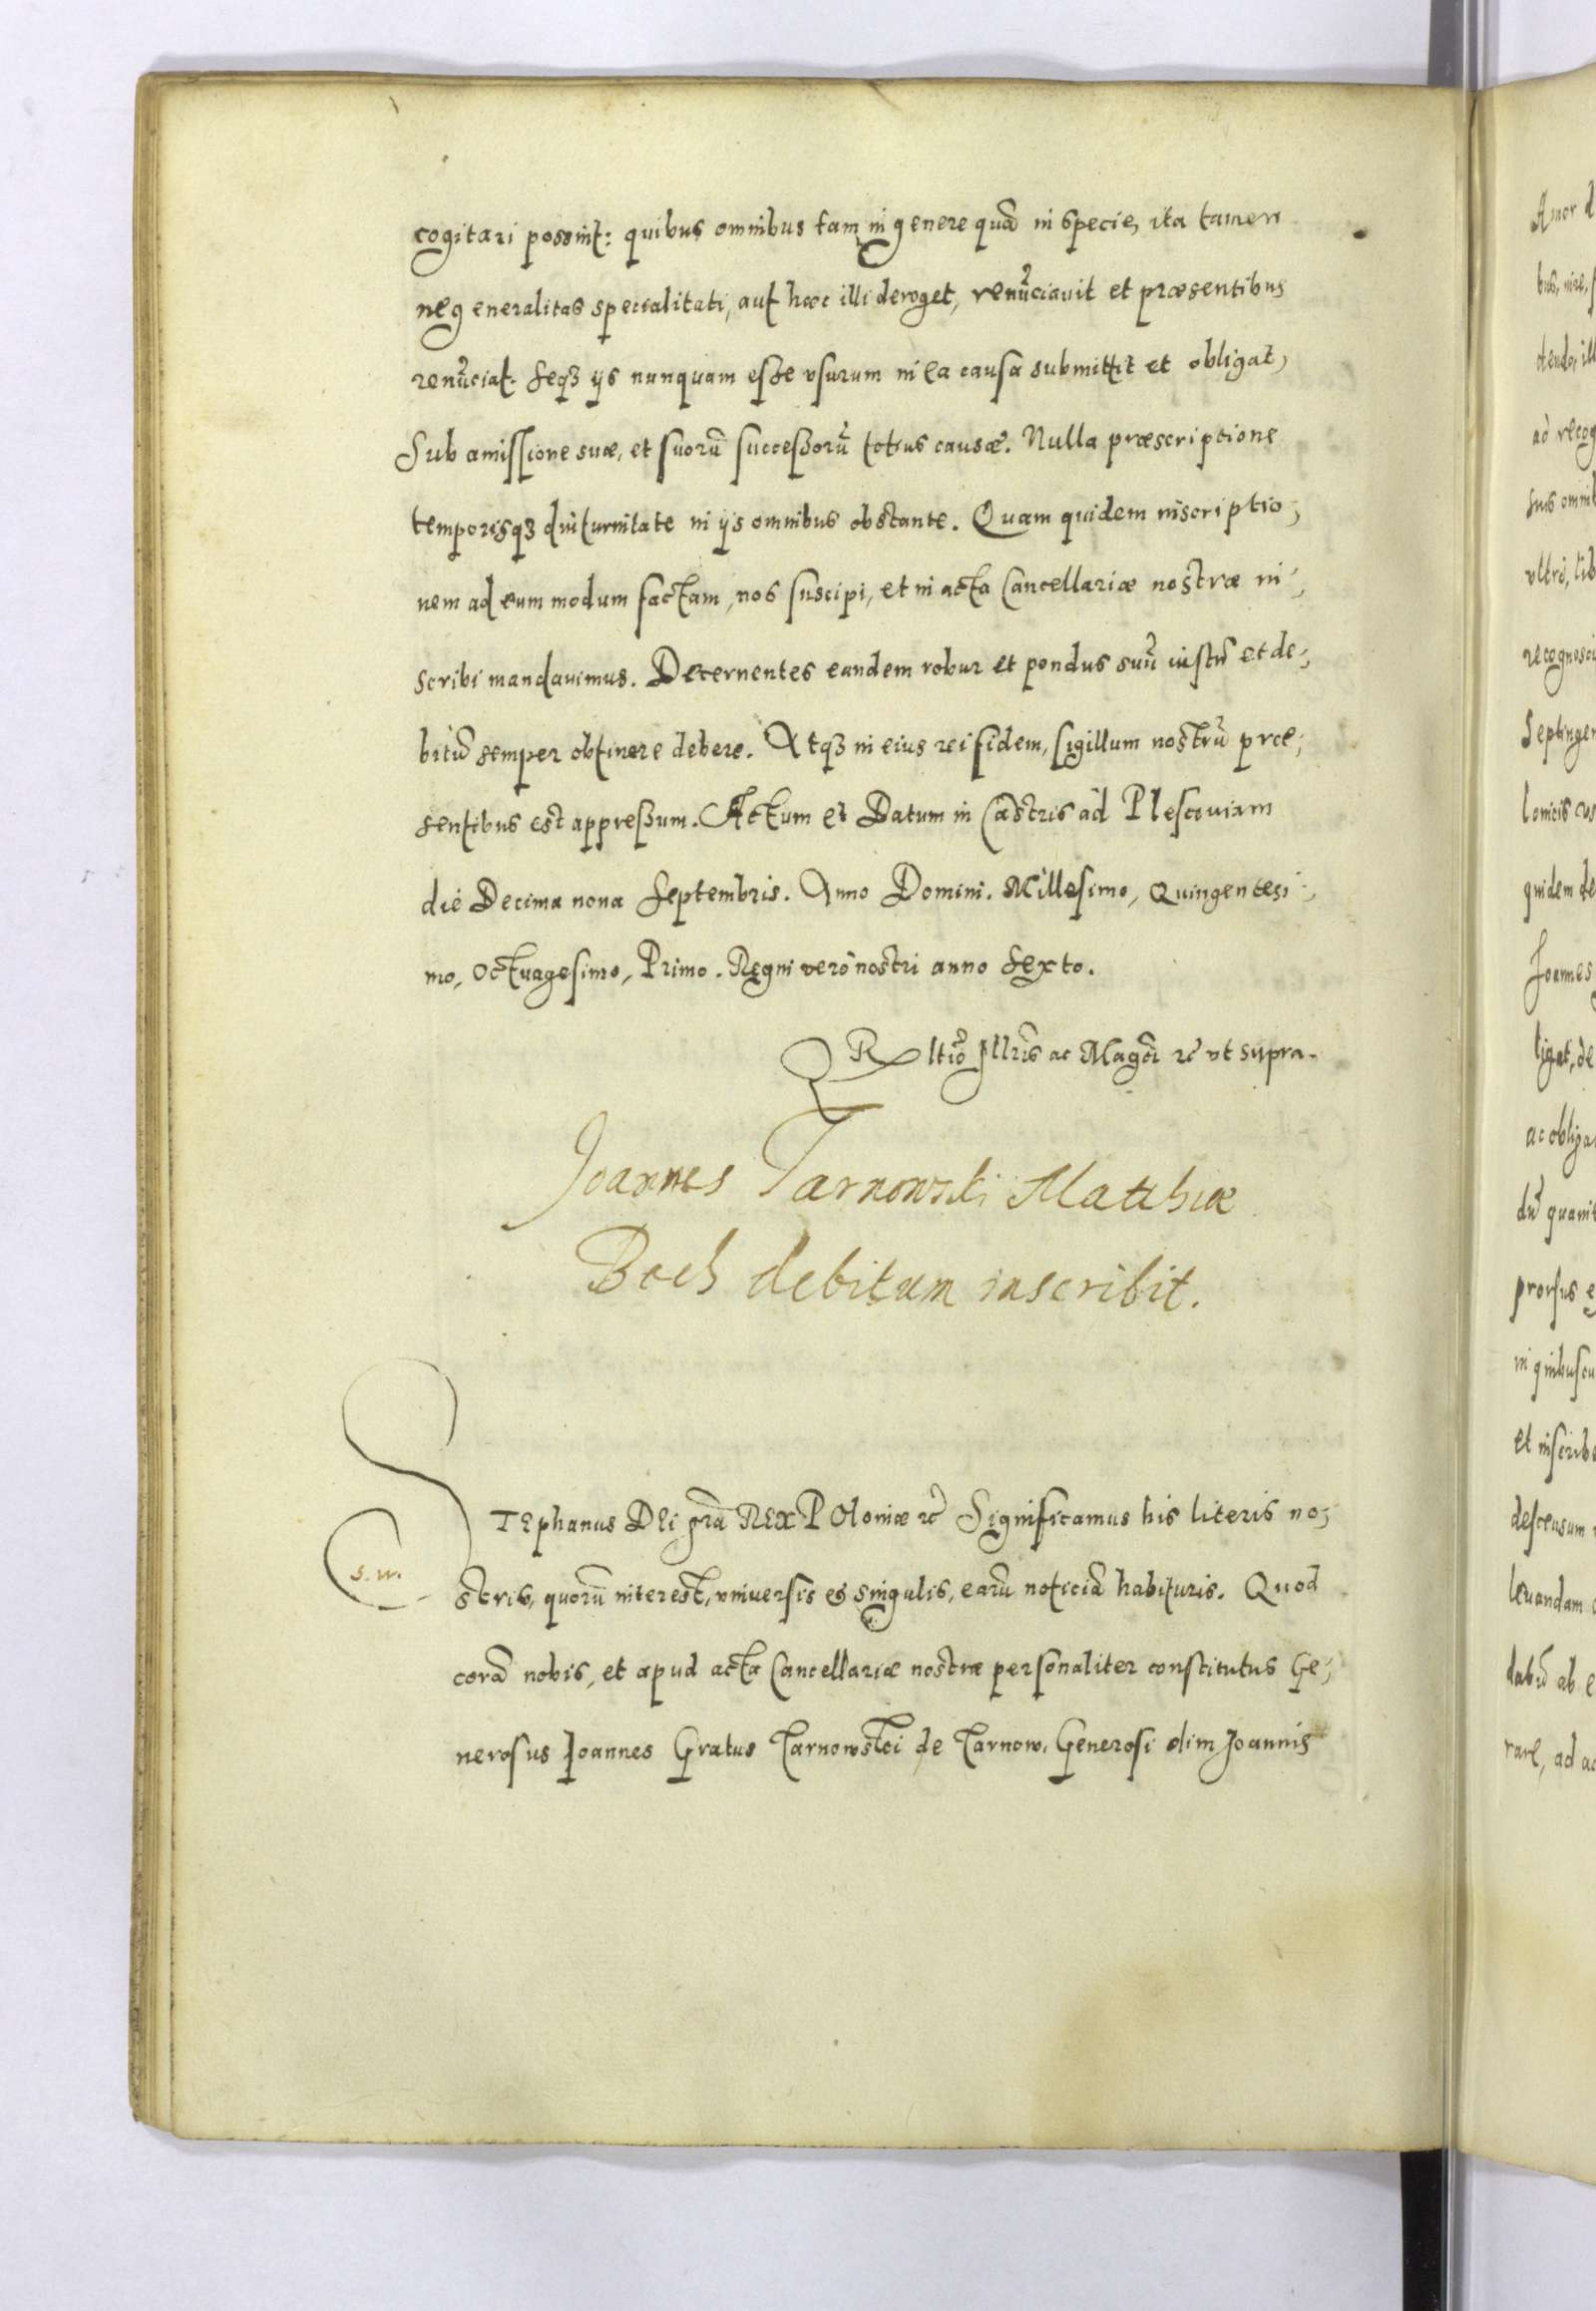 cogitari possint: quibus omnibus tam in genere quã in specie, ita tamen
ne generalitas specialitati, aut hæc illi deroget, renũciauit et præsentibus
renũciat. seqꝫ ijs nunquam esse vsurum in ea causa submittit et obligat,
Sub amissione suæ, et suorũ successorũ totius causæ. Nulla præscriptione
temporisqꝫ diuturnitate in ijs omnibus obstante. Quam quidem inscriptio;
nem ad eum modum factam, nos suscipi, et in acta Cancellariæ nostræ in;
scribi mandauimus. Decernentes eandem robur et pondus suũ iustũ et de;
bitũ semper obtinere debere. Atqꝫ in eius rei fidem, sigillum nostrũ præ;
sentibus est appressum. Actum et Datum in Castris ad Plescouiam
die Decima nona Septembris. Anno Domini. Millesimo, Quingentesi;
mo, Octuagesimo, Primo. Regni verò nostri anno sexto.
R ltiõ Illris ac Magci ꝛc vt supra.
Joannes Tarnowski Matthiæ
Boch debitum inscribit.
STephanus DEi grã REX POloniæ ꝛc Significamus his literis no;
s. w.
stris, quorũ interest, vniuersis et singulis, earũ noticiã habituris. Quod
corã nobis, et apud acta Cancellariæ nostræ personaliter constitutus Ge;
nerosus Joannes Gratus Tarnowski de Tarnow, Generosi olim Joannis